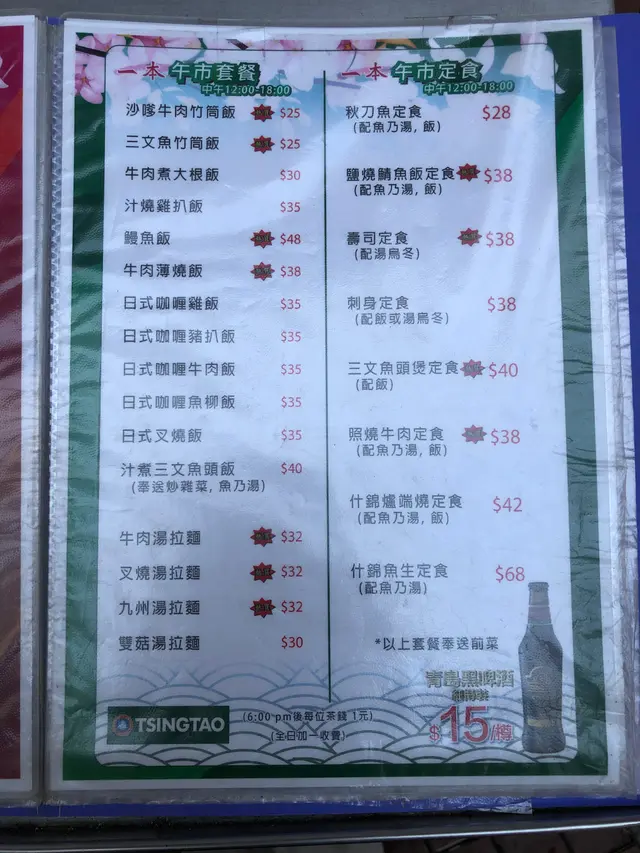 一本 午市套餐
中午12:00-18:00
沙嗲牛肉竹筒飯 $25
三文魚竹筒飯 $25
牛肉煮大根飯 $30
汁燒雞扒飯 $35
鰻魚飯 $48
牛肉薄燒飯 $38
日式咖喱雞飯 $35
日式咖喱豬扒飯 $35
日式咖喱牛肉飯 $35
日式咖喱魚柳飯 $35
日式叉燒飯 $35
汁煮三文魚頭飯 $40
(奉送炒雜菜, 魚乃湯)
牛肉湯拉麵 $32
叉燒湯拉麵 $32
九州湯拉麵 $32
雙菇湯拉麵 $30
一本 午市定食
中午12:00-18:00
秋刀魚定食 $28
(配魚乃湯, 飯)
鹽燒鯖魚飯定食 $38
(配魚乃湯, 飯)
壽司定食 $38
(配湯烏冬)
刺身定食 $38
(配飯或湯烏冬)
三文魚頭煲定食 $40
(配飯)
照燒牛肉定食 $38
(配魚乃湯, 飯)
什錦爐端燒定食 $42
(配魚乃湯, 飯)
什錦魚生定食 $68
(配魚乃湯)
*以上套餐奉送前菜
TSINGTAO
(6:00 pm後每位茶錢 1元)
(全日加一收費)
青島黑啤酒
$15/樽